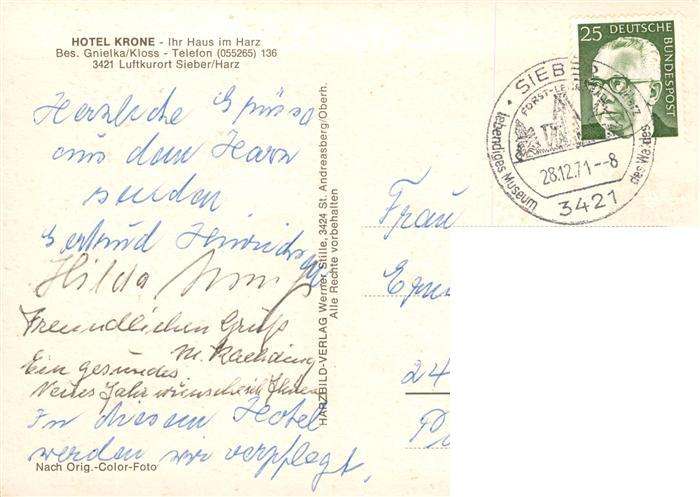 HOTEL KRONE - Ihr Haus im Harz
Bes. Gnielka/Kloss - Telefon (055265) 136
3421 Luftkurort Sieber/Harz
Herzliche Grüsse
aus dem Harz
senden
Gertrud
Hilda
Freundlichen Gruß
Ein gesundes
Neues Jahr wünscht Ihnen
In diesem Hotel
werden wir verpflegt.
Nach Orig.-Color-Foto
HARZBILD-VERLAG Werner Stille, 3424 St. Andreasberg/Oberh.
Alle Rechte vorbehalten
25 DEUTSCHE BUNDESPOST
SIEBER
lebendiges Museum
des Waldes
28.12.71--8
3421
Frau
24